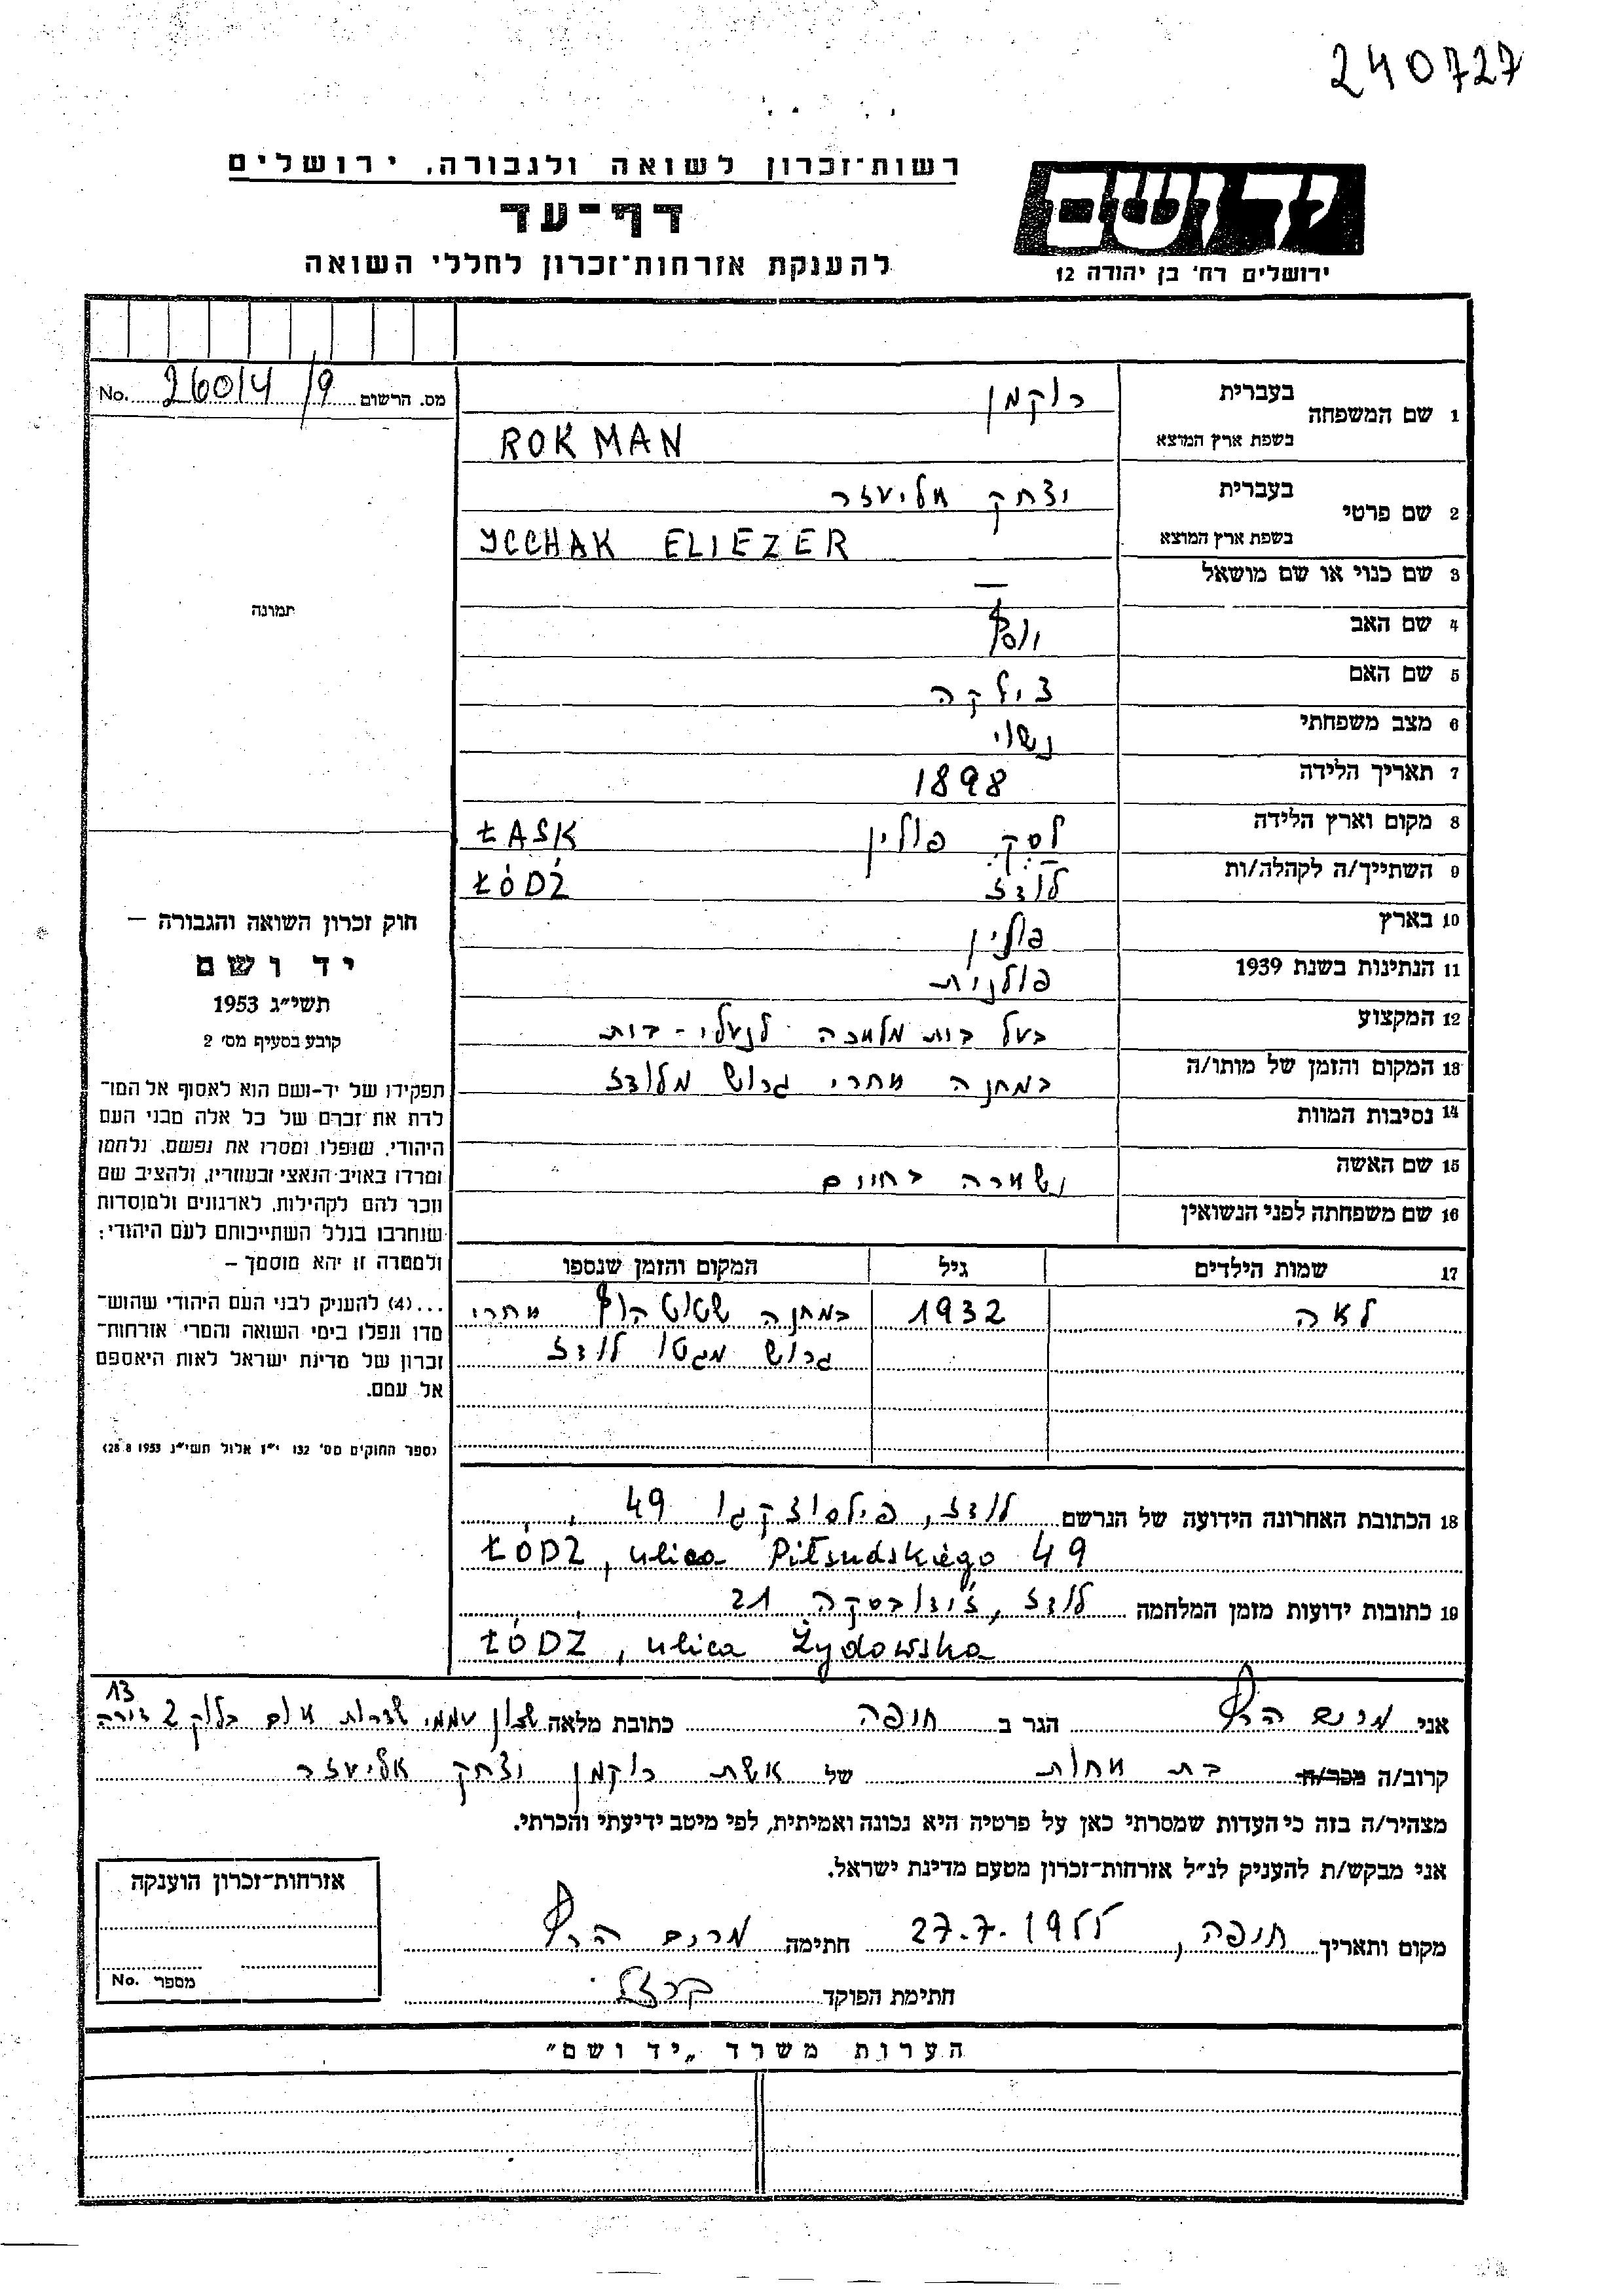 240727
רשות־זכרון לשואה ולגבורה, ירושלים
דף־עד
להענקת אזרחות־זכרון לחללי השואה
יד ושם
ירושלים רח' בן יהודה 12
No. 26014/9 מס. הרשום
1 שם המשפחה בעברית רוקמן
בשפת ארץ המוצא ROKMAN
2 שם פרטי בעברית יצחק אליעזר
בשפת ארץ המוצא YCCHAK ELIEZER
3 שם כנוי או שם מושאל —
תמונה
4 שם האב יוסף
5 שם האם צילקה
6 מצב משפחתי נשוי
7 תאריך הלידה 1898
8 מקום וארץ הלידה לסק פולין ŁASK
9 השתייך/ה לקהלה/ות לודז ŁÓDŹ
10 בארץ פולין
11 הנתינות בשנת 1939 פולנית
12 המקצוע בעל בית מלאכה לנעלי-בית
13 המקום והזמן של מותו/ה במחנה אחרי גרוש מלודז
14 נסיבות המוות
15 שם האשה נשארה בחיים
16 שם משפחתה לפני הנשואין
17 שמות הילדים גיל המקום והזמן שנספו
לאה 1932 במחנה שטוטהוף אחרי
גרוש מגטו לודז
חוק זכרון השואה והגבורה —
יד ושם
תשי״ג 1953
קובע בסעיף מס' 2
תפקידו של יד-ושם הוא לאסוף אל המו־
לדת את זכרם של כל אלה מבני העם
היהודי, שנפלו ומסרו את נפשם, נלחמו
ומרדו באויב הנאצי ובעוזריו, ולהציב שם
וזכר להם לקהילות, לארגונים ולמוסדות
שנחרבו בגלל השתייכותם לעם היהודי;
ולמטרה זו יהא מוסמך —
...(4) להעניק לבני העם היהודי שהוש־
מדו ונפלו בימי השואה והמרי אזרחות־
זכרון של מדינת ישראל לאות היאספם
אל עמם.
(ספר החוקים מס' 132 י״ז אלול תשי״ג 28.8.1953)
18 הכתובת האחרונה הידועה של הנרשם לודז, פילסוצקגו 49
ŁÓDZ, ulica Piłsudskiego 49
19 כתובות ידועות מזמן המלחמה לודז, ז'ידובסקה 21
ŁÓDZ, ulica Żydowska
13
אני מרים הרף הגר ב חיפה כתובת מלאה שכון עממי שדרות אום בלוק 2 דירה
קרוב/ה מכר/ה בת אחות של אשת רוקמן יצחק אליעזר
מצהיר/ה בזה כי העדות שמסרתי כאן על פרטיה היא נכונה ואמיתית, לפי מיטב ידיעתי והכרתי.
אני מבקש/ת להעניק לנ״ל אזרחות־זכרון מטעם מדינת ישראל.
מקום ותאריך חיפה, 27.7.1955 חתימה מרים הרף
חתימת הפוקד
אזרחות־זכרון הוענקה
מספר No.
הערות משרד „יד ושם״